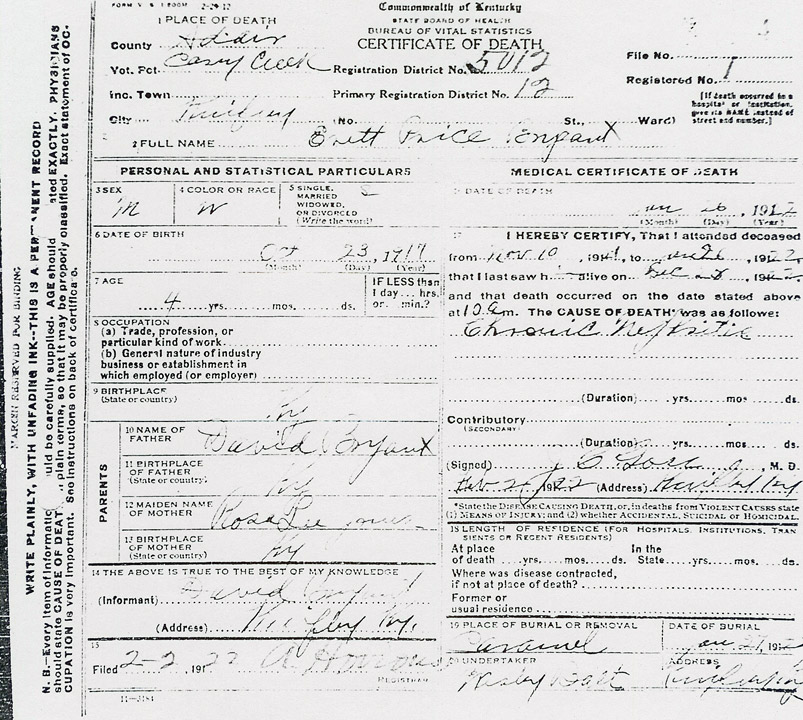 Commonwealth of Kentucky
STATE BOARD OF HEALTH
BUREAU OF VITAL STATISTICS
CERTIFICATE OF DEATH
1 PLACE OF DEATH
County Adair
Vot. Pct. Casey Creek
Inc. Town
City Knifley (No. St., Ward)
Registration District No. 5012
Primary Registration District No. 12
File No.
Registered No. 1
[If death occurred in a hospital or institution, give its NAME instead of street and number.]
2 FULL NAME Brett Price Bryant
PERSONAL AND STATISTICAL PARTICULARS
3 SEX M
4 COLOR OR RACE W
5 SINGLE, MARRIED WIDOWED, OR DIVORCED (Write the word) S
6 DATE OF BIRTH
Oct 23, 1917
(Month) (Day) (Year)
7 AGE
4 yrs. mos. ds.
IF LESS than 1 day... hrs. or. min.?
8 OCCUPATION
(a) Trade, profession, or
particular kind of work
(b) General nature of industry
business or establishment in
which employed (or employer)
9 BIRTHPLACE
(State or country) Ky
PARENTS
10 NAME OF FATHER David Bryant
11 BIRTHPLACE OF FATHER (State or country) Ky
12 MAIDEN NAME OF MOTHER Rosa Lee
13 BIRTHPLACE OF MOTHER (State or country) Ky
14 THE ABOVE IS TRUE TO THE BEST OF MY KNOWLEDGE
(Informant) David Bryant
(Address) Knifley Ky.
15
Filed 2-2, 1922
REGISTRAR
11-3184
MEDICAL CERTIFICATE OF DEATH
DATE OF DEATH
Jan 26, 1922
(Month) (Day) (Year)
I HEREBY CERTIFY, That I attended deceased
from Nov 10, 1921, to Jan 26, 1922,
that I last saw h alive on
and that death occurred on the date stated above
at 10 a m. The CAUSE OF DEATH was as follows:
Chronic Nephritis
(Duration) yrs. mos ds.
Contributory
(SECONDARY)
(Duration) yrs. mos. ds.
(Signed) J C Goss, M. D.
Feb 2, 1922 (Address) Knifley Ky
*State the DISEASE CAUSING DEATH, or, in deaths from VIOLENT CAUSES state
(1) MEANS OF INJURY; and (2) whether ACCIDENTAL, SUICIDAL OR HOMICIDAL.
18 LENGTH OF RESIDENCE (FOR HOSPITALS, INSTITUTIONS, TRAN
SIENTS OR RECENT RESIDENTS)
At place of death yrs. mos. ds. In the State yrs. mos. ds.
Where was disease contracted,
if not at place of death?
Former or
usual residence
19 PLACE OF BURIAL OR REMOVAL
DATE OF BURIAL
Jan 27, 192
UNDERTAKER
ADDRESS
MARGIN RESERVED FOR BINDING
WRITE PLAINLY, WITH UNFADING INK--THIS IS A PERMANENT RECORD
N. B.--Every item of information should be carefully supplied. AGE should stated EXACTLY. PHYSICIANS
should state CAUSE OF DEATH plain terms, so that it may be properly classified. Exact statement of OC-
CUPATION is very important. See instructions on back of certificate.